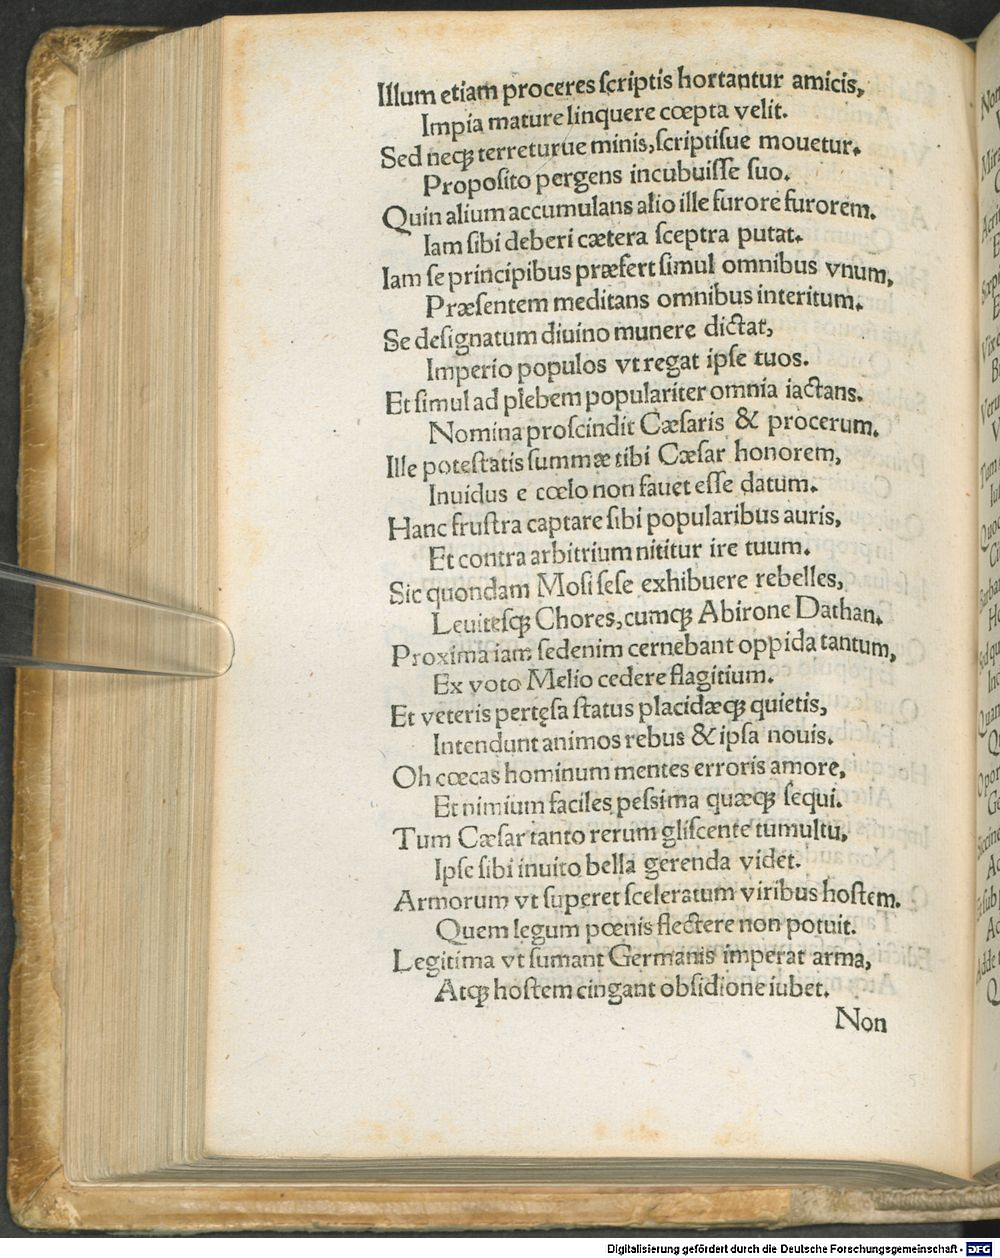 Illum etiam proceres ſcriptis hortantur amicis,
Impia mature linquere cœpta velit.
Sed neqꝫ terreturue minis, ſcriptiſue mouetur.
Propoſito pergens incubuiſſe ſuo.
Quin alium accumulans alio ille furore furorem.
Iam ſibi deberi cætera ſceptra putat.
Iam ſe principibus præfert ſimul omnibus vnum,
Præſentem meditans omnibus interitum.
Se deſignatum diuino munere dictat,
Imperio populos vt regat ipſe tuos.
Et ſimul ad plebem populariter omnia iactans.
Nomina proſcindit Cæſaris & procerum.
Ille poteſtatis ſummæ tibi Cæſar honorem,
Inuidus e cœlo non fauet eſſe datum.
Hanc fruſtra captare ſibi popularibus auris,
Et contra arbitrium nititur ire tuum.
Sic quondam Moſi ſeſe exhibuere rebelles,
Leuiteſqꝫ Chores, cumqꝫ Abirone Dathan.
Proxima iam ſedenim cernebant oppida tantum,
Ex voto Melio cedere flagitium.
Et veteris pertęſa ſtatus placidæqꝫ quietis,
Intendunt animos rebus & ipſa nouis.
Oh cœcas hominum mentes erroris amore,
Et nimium faciles peſſima quæqꝫ ſequi.
Tum Cæſar tanto rerum gliſcente tumultu,
Ipſe ſibi inuito bella gerenda videt.
Armorum vt ſuperet ſceleratum viribus hoſtem.
Quem legum pœnis flectere non potuit.
Legitima vt ſumant Germanis imperat arma,
Atqꝫ hoſtem cingant obſidione iubet.
Non
Digitalisierung gefördert durch die Deutsche Forschungsgemeinschaft - DFG